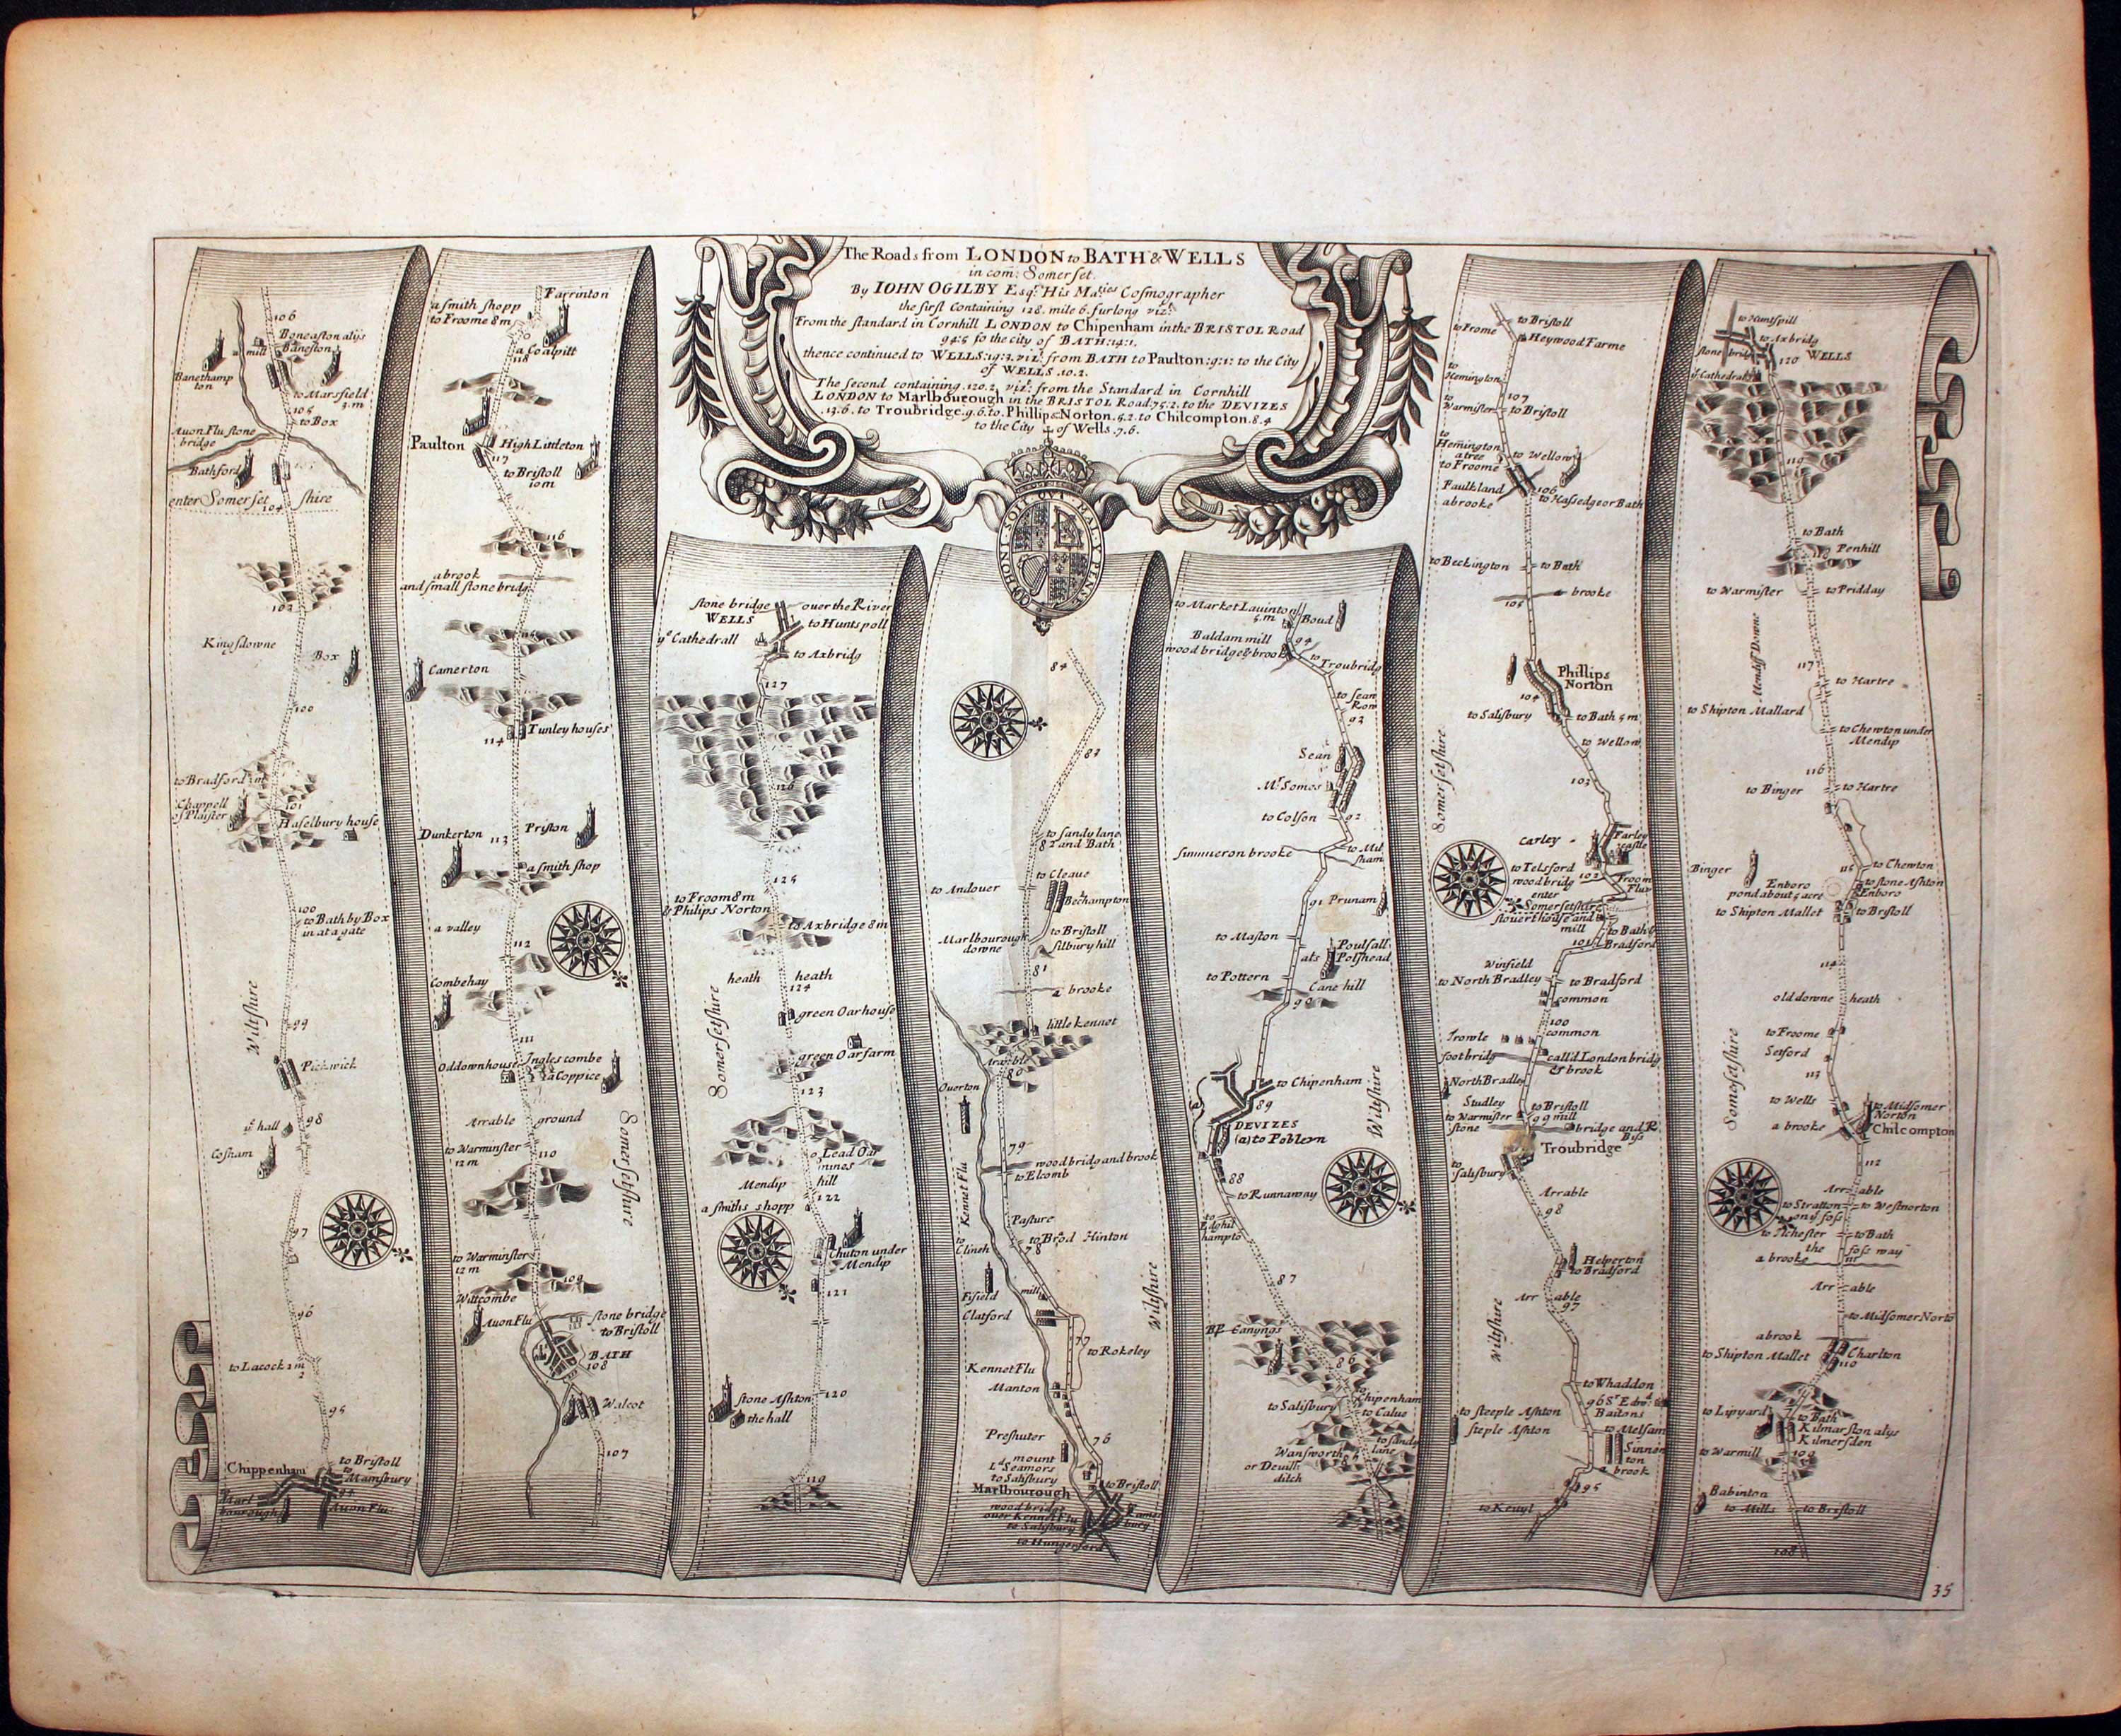 The Roads from LONDON to BATH & WELLS
in com: Somerset.
By IOHN OGILBY Esqr. His Maties Cosmographer
the first Containing 128. mile 6. furlong vizt.
From the standard in Cornhill LONDON to Chipenham in the BRISTOL Road
94:5 to the city of BATH:14:1.
thence continued to WELLS:19:3. vizt. from BATH to Paulton:9:1: to the City
of WELLS.10.2.
The Second containing.120.2. vizt: from the Standard in Cornhill
LONDON to Marlbourough in the BRISTOL Road:75.2. to the DEVIZES
13.6. to Troubridge.9.6. to Phillips Norton.5.2. to Chilcompton.8.4
to the City of Wells.7.6.
HONI SOIT QVI MAL Y PENSE
106
Boneaston alijs
Baneston
mill
Banethamp
ton
to Marsfield
3.m
105
to Box
Auon Flu stone
bridge
Bathford
enter Somerset shire
104
Kingsdowne
Box
to Bradford
101
Chappell
of Plaister
Haselbury house
100
to Bath by Box
in at a gate
Wiltshire
99
Pickwick
98
Cosham
97
96
to Lacock 2m
95
to Bristoll
Chippenham
to Mamsbury
94
Marl
bourough
Auon Flu
Farrinton
a smith shopp
to Froome 8m
a Coalpitt
118
Paulton
High Littleton
117
to Bristoll
10m
116
a brook
and small stone bridg
Camerton
Tunley houses
114
Dunkerton
113
Priston
a smith shop
a valley
112
Combehay
111
Oddownhouse
Inglescombe
a Coppice
Arrable ground
to Warminster
12m
110
Somersetshire
to Warminster
12m
109
Wittcombe
Auon Flu
stone bridge
to Bristoll
BATH
108
Walcot
107
stone bridge
ouer the River
WELLS
to Huntspoll
ye Cathedrall
to Axbridg
127
126
125
to Froom 8m
& Philips Norton
to Axbridge 8m
heath
heath
124
green Oar house
Somersetshire
green Oar farm
123
Lead Oar
mines
Mendip hill
122
a smiths shopp
Chuton under
Mendip
121
stone Ashton
the hall
120
119
84
83
to sandy lane
82 and Bath
to Cleaue
to Andouer
Bechampton
to Bristoll
Marlbourough
downe
silbury hill
81
a brooke
little kennet
Arrable
80
Ouerton
79
wood bridg and brook
to Elcomb
Kennet Flu
Pasture
to Brod Hinton
78
to
Clineh
Fifield
mill
Clatford
Wiltshire
77
to Rokeley
Kennet Flu
Manton
Preshuter
76
mount
Ld Seamors
to Salisbury
Marlbourough
to Bristoll
wood bridg
ouer Kennet Flu
to Salisbury
to Hungerford
to Market Lauinton
5.m
Boud
Baldam mill
94
wood bridge & brook
to Troubridg
to sean
Row
93
Sean
Mr Somes
to Colson
92
Summeron brooke
to Mil
sham
91
Prunam
to Maston
Poulsall
als Polshead
to Pottern
Cane hill
90
to Chipenham
89
DEVIZES
(a) to Poblern
Wiltshire
88
to Runnaway
87
BP Canyngs
86
Chipenham
to Salisbury
to Calue
to sandy
lane
Wansworth
or Deuills
ditch
85
to Bristoll
to Frome
Heywood Farme
to
Hemington
107
to
Warmister
to Bristoll
to
Hemington
a tree
to Froome
to Wellow
Faulkland
106
to Hassedge or Bath
a brooke
to Beckington
to Bath
105
brooke
Phillips
Norton
104
to Salisbury
to Bath 5m
to Wellow
Somersetshire
103
Carley
Farley
castle
to Telsford
wood bridg
102
Froom
Flu
enter
Somersetshire
stouerthouse and
mill
to Bath &
Bradford
101
Winfield
to North Bradley
to Bradford
common
100
common
Trowle
foot bridg
call'd London bridg
& brook
North Bradley
Studley
to Warmister
to Bristoll
99 mill
stone
bridge and R.
Biss
Troubridge
to
Salisbury
Arrable
98
Helperton
to Bradford
Arr able
97
Wiltshire
to Whaddon
96
to steeple Ashton
Baitons
steple Ashton
to Melsam
Sinnen
ton
a brook
95
to Keuyl
to Huntspill
to Axbridg
stone bridg
120
WELLS
ye Cathedrall
119
to Bath
Penhill
118
to Warmister
to Pridday
Mendiff Downe
117
to Hartre
to Shipton Mallard
to Chewton under
Mendip
116
to Binger
to Hartre
to Chewton
115
Binger
to stone Ashton
Enboro
pond about 5 acre
Enboro
to Shipton Mallet
to Brstoll
114
old downe heath
to Froome
Setford
113
Somersetshire
to Wells
to Midsomer
Norton
a brooke
Chilcompton
112
Arr able
to Stratton
on ye foss
to Westnorton
to Ilchester
to Bath
the foss way
a brooke
111
Arr able
to Midsomer Norto
a brook
to Shipton Mallet
Charlton
110
to Lipyard
to Bath
Kilmarston alijs
Kilmersden
to Warmill
109
Babinton
to Mills
to Bristoll
108
35